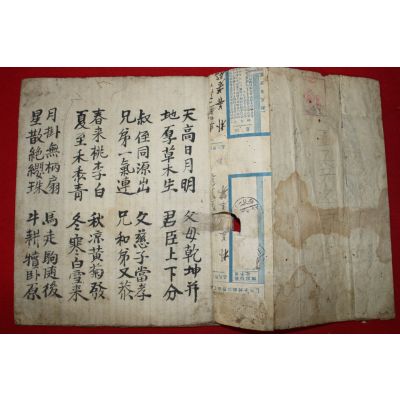 天高日月明 父母乾坤并
地厚草木生 君臣上下分
叔侄同源出 父慈子當孝
兄弟一氣連 兄和弟又恭
春来桃李白 秋凉黄菊發
夏至木葉青 冬寒白雪来
月掛無柄扇 馬走駒随後
星散絶纓珠 牛耕犢臥原